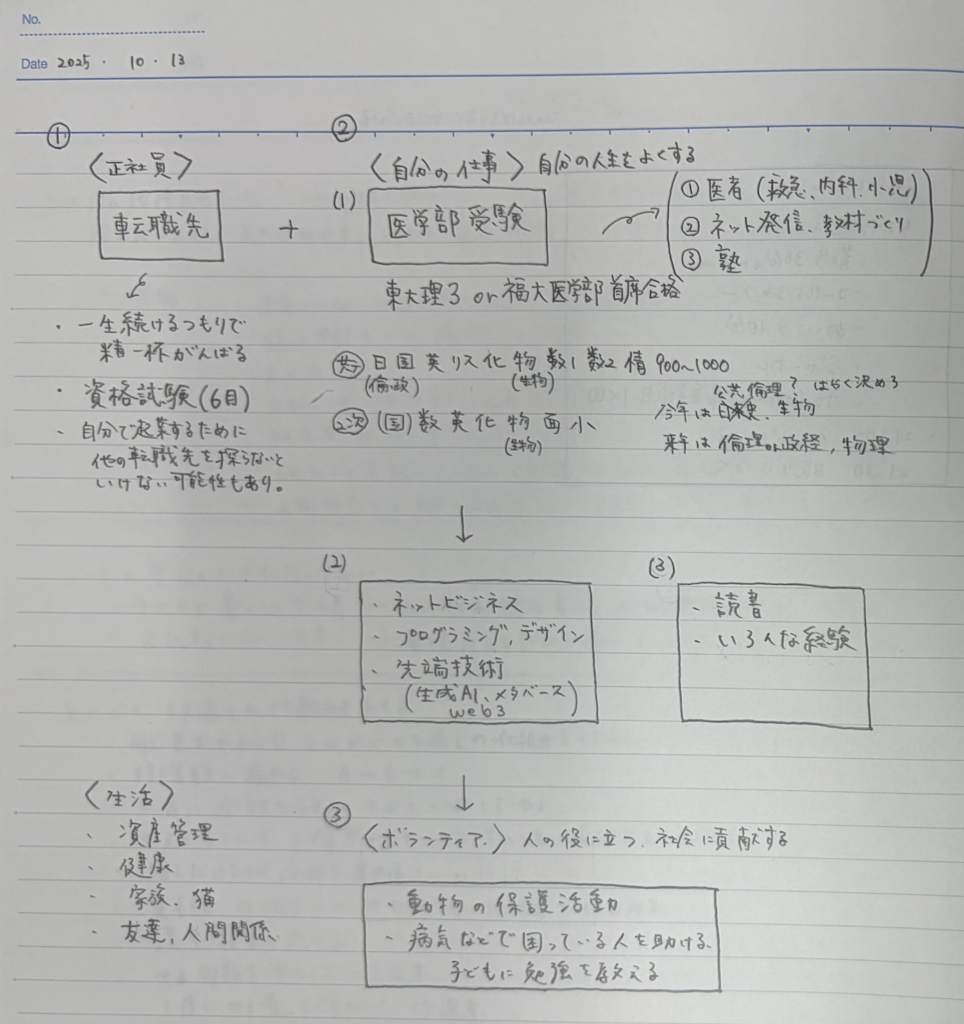 No.
Date 2025 ・ 10 ・ 13
①
〈正社員〉
転職先
・一生続けるつもりで
精一杯がんばる
・資格試験(6月)
・自分で起業するために
他の転職先を探さないと
いけない可能性もあり。
+
②
〈自分の仕事〉自分の人生をよくする
(1)
医学部受験
① 医者 (救急、内科、小児)
② ネット発信、教材づくり
③ 塾
東大理3 or 福大医学部首席合格
共テ 日国英リス化物数1数2情 900~1000
(倫政) (生物)
公共倫理? はやく決める
二次 (国)数英化物面小
(生物)
今年は日本史、生物
来年は倫理or政経,物理
↓
(2)
・ネットビジネス
・プログラミング,デザイン
・先端技術
(生成AI、メタバース
web3)
(3)
・読書
・いろんな経験
↓
〈生活〉
・資産管理
・健康
・家族、猫
・友達,人間関係
③
〈ボランティア〉人の役に立つ、社会に貢献する
・動物の保護活動
・病気などで困っている人を助ける、
子どもに勉強を教える